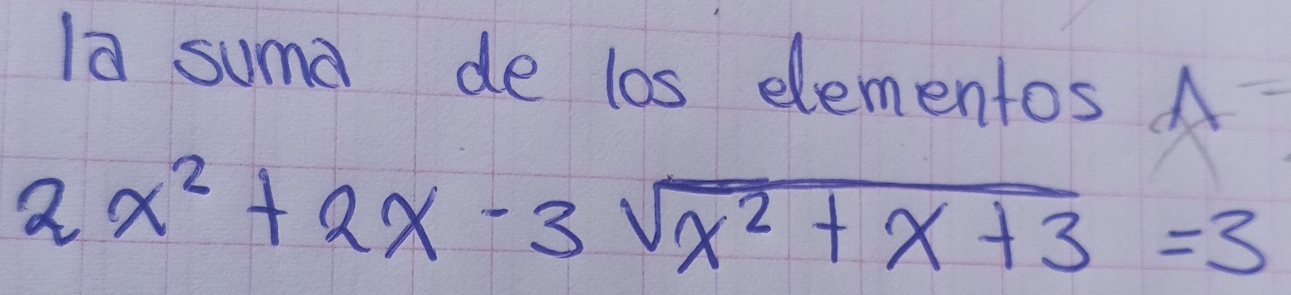 la suma de los elementos A =
2x² + 2x - 3√(x² + x + 3) = 3